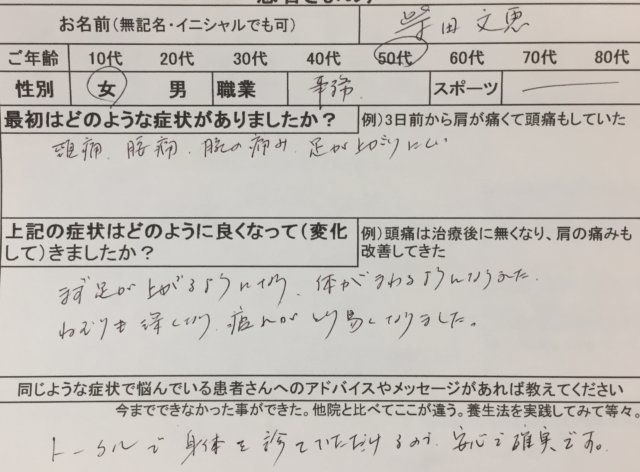 お名前(無記名・イニシャルでも可) 柴田文恵
ご年齢 10代 20代 30代 40代 50代 60代 70代 80代
性別 女 男 職業 事務 スポーツ
最初はどのような症状がありましたか? 例)3日前から肩が痛くて頭痛もしていた
頭痛、腰痛、腕の痛み、足が上がりにくい
上記の症状はどのように良くなって(変化 例)頭痛は治療後に無くなり、肩の痛みも
して)きましたか? 改善してきた
まず足が上がるようになり、体がまわるようになりました。
ねむりも深くなり、疲れがとり易くなりました。
同じような症状で悩んでいる患者さんへのアドバイスやメッセージがあれば教えてください
今までできなかった事ができた。他院と比べてここが違う。養生法を実践してみて等々。
トータルで身体を診ていただけるので、安心で確実です。